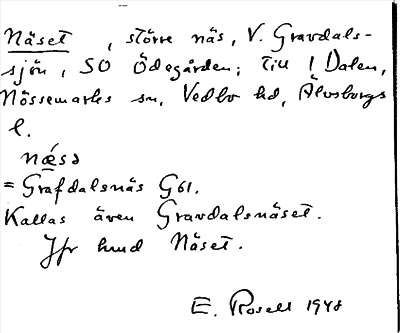 Näset, större näs, V. Gravdals-
sjön, SO Ödegården; till 1 Dalen,
Nössemarks sn, Vedbo hd, Älvsborgs
l.
næ̂sə
= Grafdalsnäs G61.
Kallas även Gravdalsnäset.
Jfr hmd Näset.
E. Rosell 1948